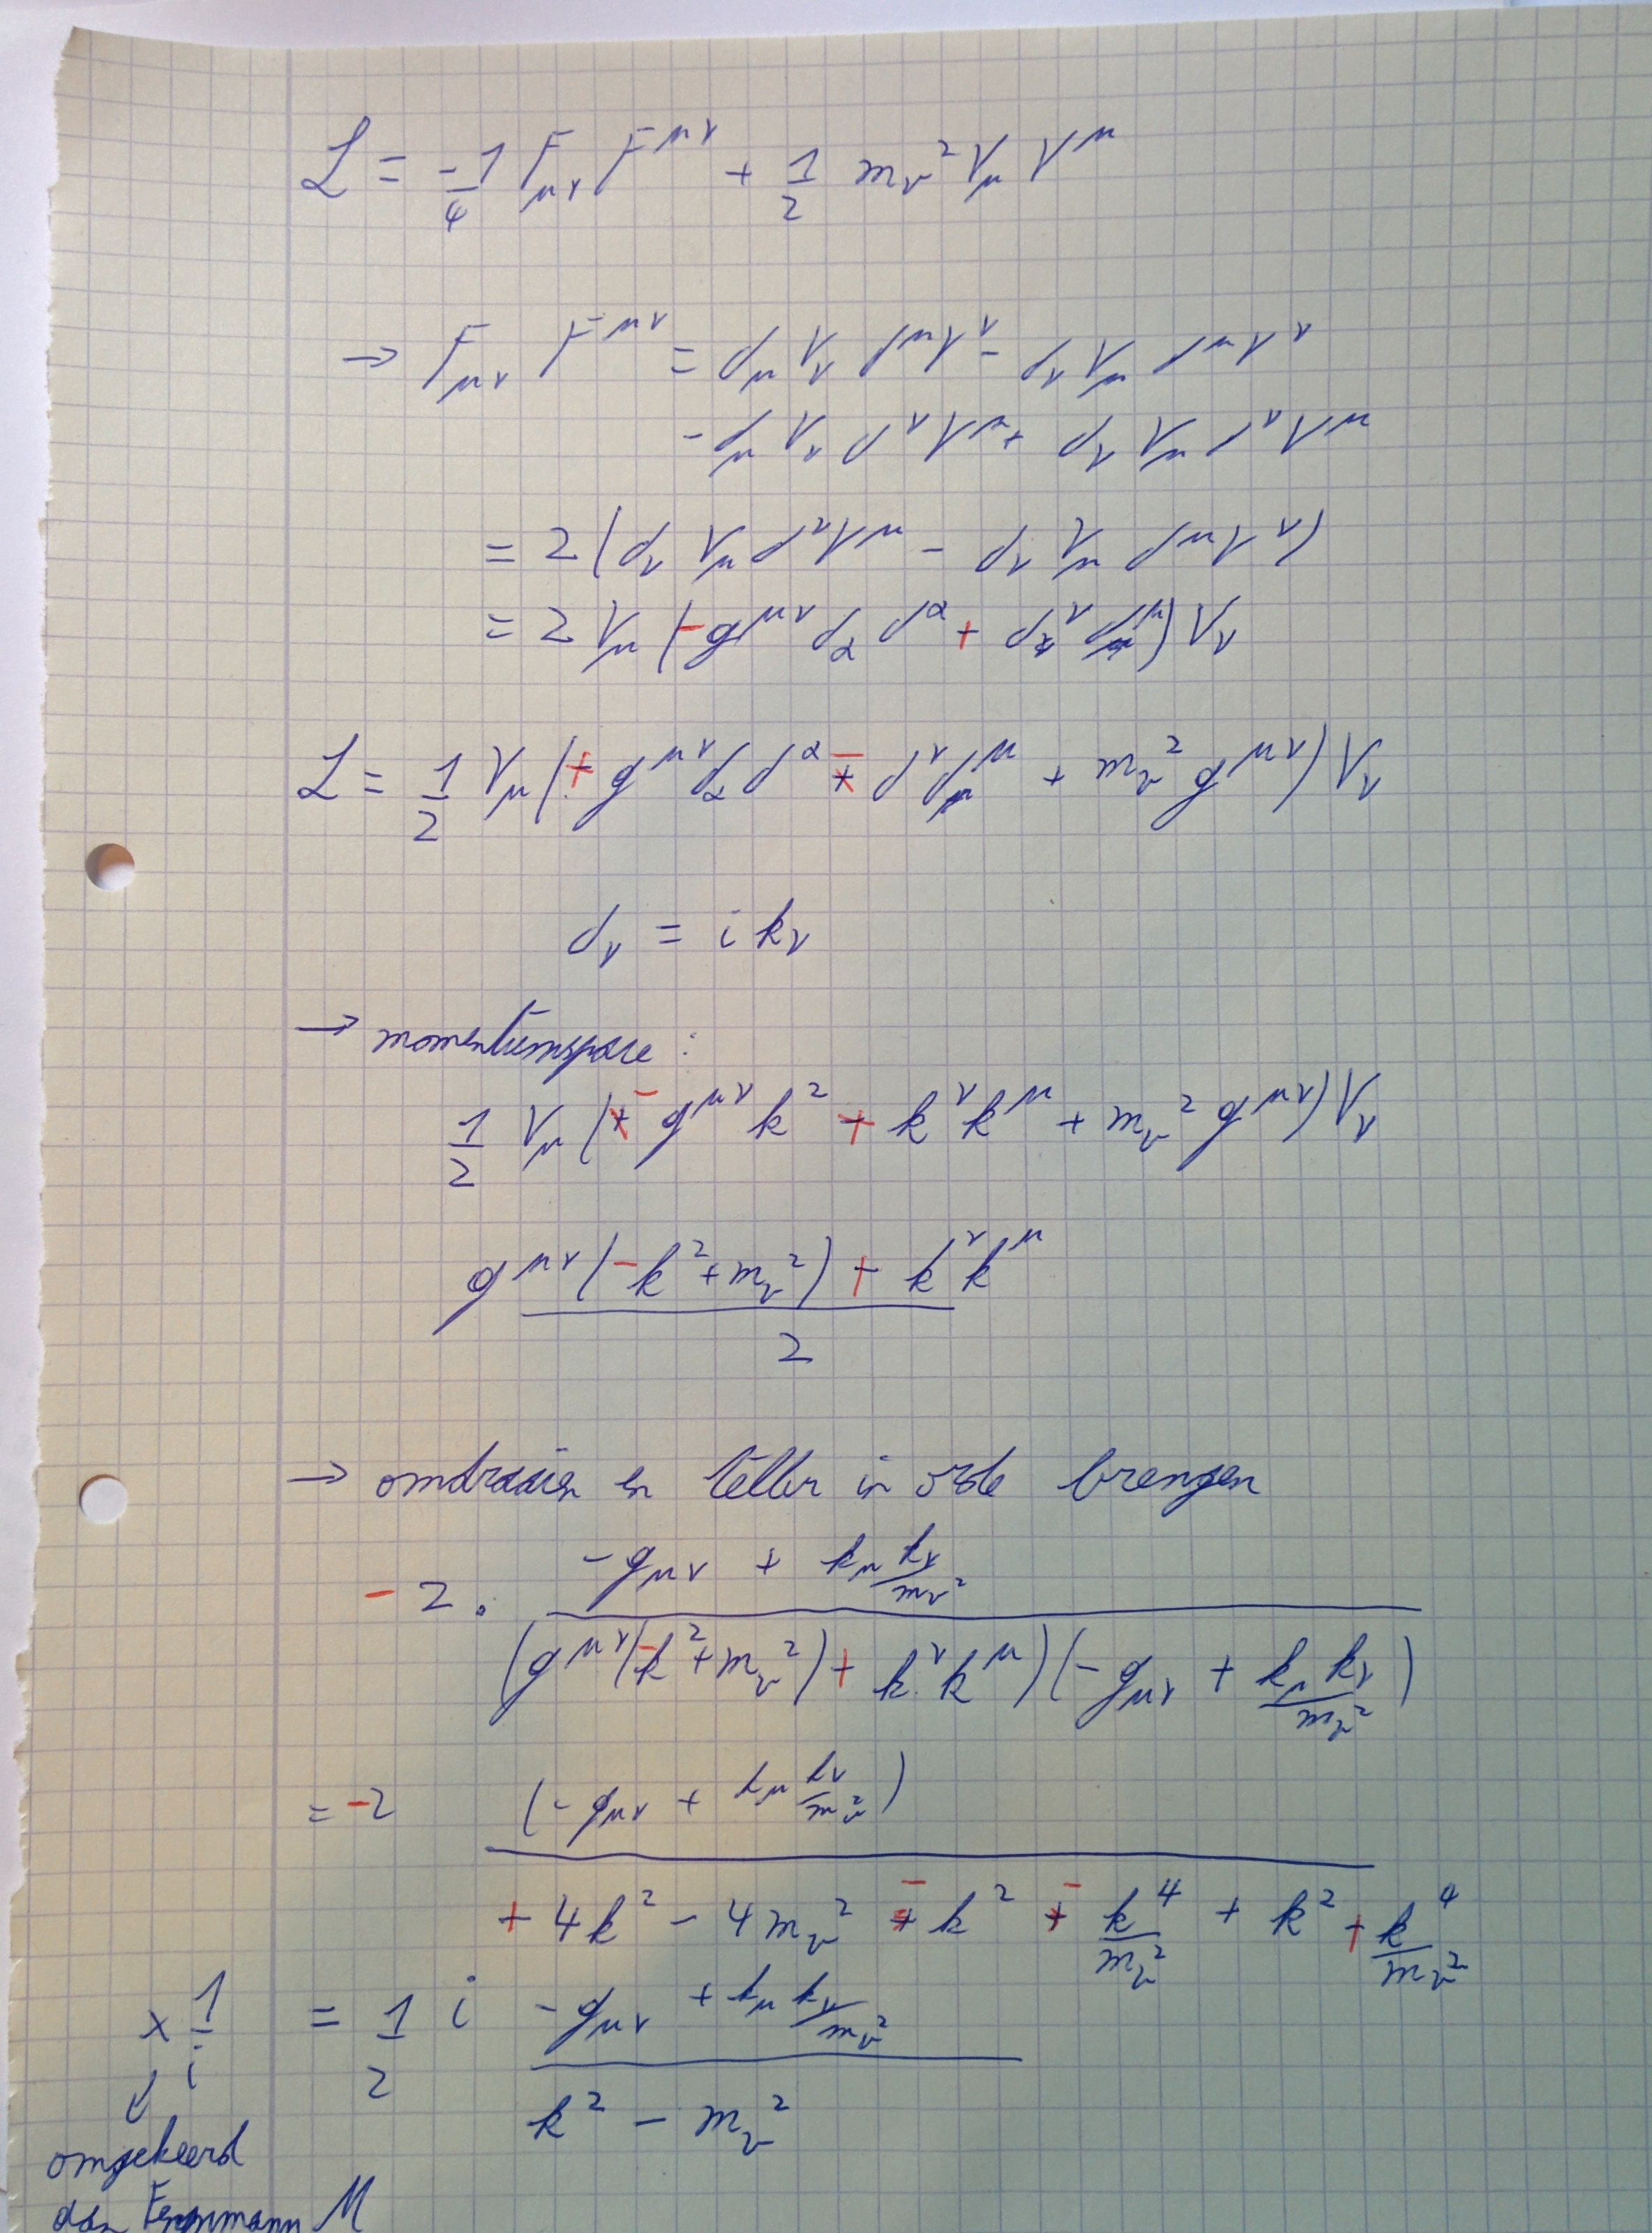 L = -1/4 F_μν F^μν + 1/2 m_v² V_μ V^μ
→ F_μν F^μν = ∂_μ V_ν ∂^μ V^ν - ∂_ν V_μ ∂^μ V^ν
- ∂_μ V_ν ∂^ν V^μ + ∂_ν V_μ ∂^ν V^μ
= 2 (∂_ν V_μ ∂^ν V^μ - ∂_ν V_μ ∂^μ V^ν)
= 2 V_μ (- g^μν ∂_α ∂^α + ∂^ν ∂^μ) V_ν
L = 1/2 V_μ (+ g^μν ∂_α ∂^α - ∂^ν ∂^μ + m_v² g^μν) V_ν
∂_ν = i k_ν
→ momentumspace :
1/2 V_μ (- g^μν k² + k^ν k^μ + m_v² g^μν) V_ν
g^μν (-k² + m_v²) + k^ν k^μ
2
→ omdraaien en teller in orde brengen
- 2 . (-g_μν + k_μ k_ν/m_v²)
(g^μν (-k² + m_v²) + k^ν k^μ) (-g_μν + k_μ k_ν/m_v²)
= -2 (-g_μν + k_μ k_ν/m_v²)
+ 4k² - 4m_v² - k² - k⁴/m_v² + k² + k⁴/m_v²
x 1/i = 1/2 i -g_μν + k_μ k_ν/m_v²
k² - m_v²
omgekeerd
dan Feynmann M